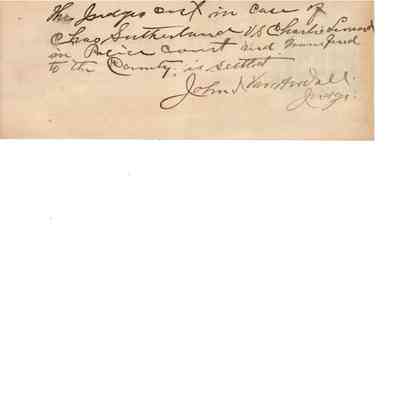 The Judges cost in case of
Chas Sutherland VS Charlie
in Police Court and transfered
to the County, is settled
John
Judge.